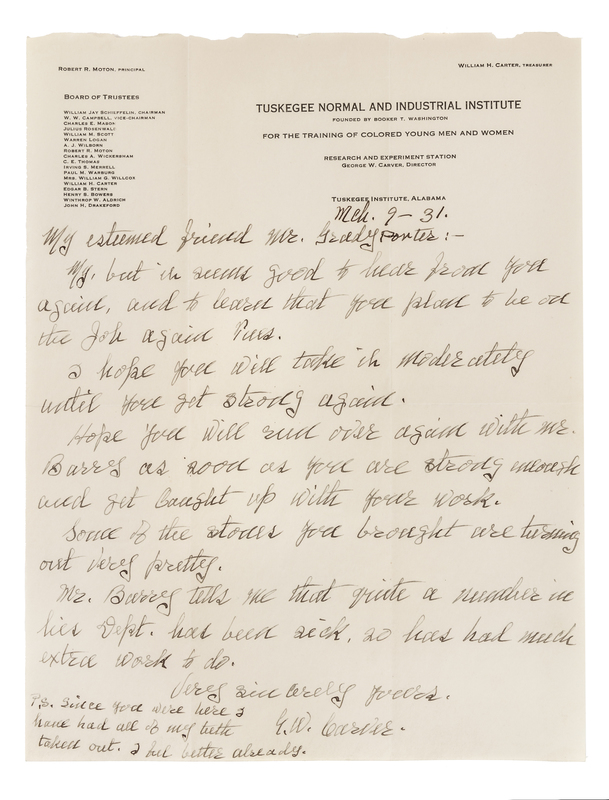 ROBERT R. MOTON, PRINCIPAL
WILLIAM H. CARTER, TREASURER
BOARD OF TRUSTEES
WILLIAM JAY SCHIEFFELIN, CHAIRMAN
W. W. CAMPBELL, VICE-CHAIRMAN
CHARLES E. MASON
JULIUS ROSENWALD
WILLIAM M. SCOTT
WARREN LOGAN
A. J. WILBORN
ROBERT R. MOTON
CHARLES A. WICKERSHAM
C. E. THOMAS
IRVING S. MERRELL
PAUL M. WARBURG
MRS. WILLIAM G. WILLCOX
WILLIAM H. CARTER
EDGAR B. STERN
HENRY S. BOWERS
WINTHROP W. ALDRICH
JOHN H. DRAKEFORD
TUSKEGEE NORMAL AND INDUSTRIAL INSTITUTE
FOUNDED BY BOOKER T. WASHINGTON
FOR THE TRAINING OF COLORED YOUNG MEN AND WOMEN
RESEARCH AND EXPERIMENT STATION
GEORGE W. CARVER, DIRECTOR
TUSKEGEE INSTITUTE, ALABAMA
Mch. 9-31.
My esteemed friend Mr. Grady Porter:-
My, but it seems good to hear from you
again, and to learn that you plan to be on
the Job again Thurs.
I hope you will take it moderately
until you get strong again.
Hope you will run over again with Mr.
Barry as soon as you are strong enough
and get caught up with your work.
Some of the stones you brought are turning
out very pretty.
Mr. Barry tells me that quite a number in
his Dept. has been sick, so has had much
extra work to do.
Very sincerely yours.
G. W. Carver.
P.S. Since you were here I
have had all of my teeth
taken out. I feel better already.